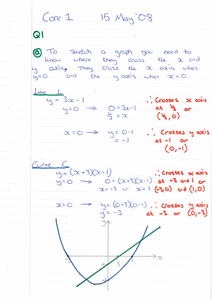 Core 1 15 May '08
Q1
a To sketch a graph you need to
know where they cross the x and
y axis. They cross the x axis when
y=0 and the y axis when x=0.
Line L
y = 3x-1
y=0 → 0=3x-1
1/3 = x
∴ Crosses x axis
at 1/3 or
(1/3, 0)
x=0 → y=0-1
= -1
∴ Crosses y axis
at -1 or
(0,-1)
Curve C
y=(x+3)(x-1)
y=0 → 0=(x+3)(x-1)
x=-3 or x=1
∴ Crosses x axis
at -3 and 1 or
(-3,0) and (1,0)
x=0 → y=(0+3)(0-1)
y=-3
∴ Crosses y axis
at -3 or (0,-3)